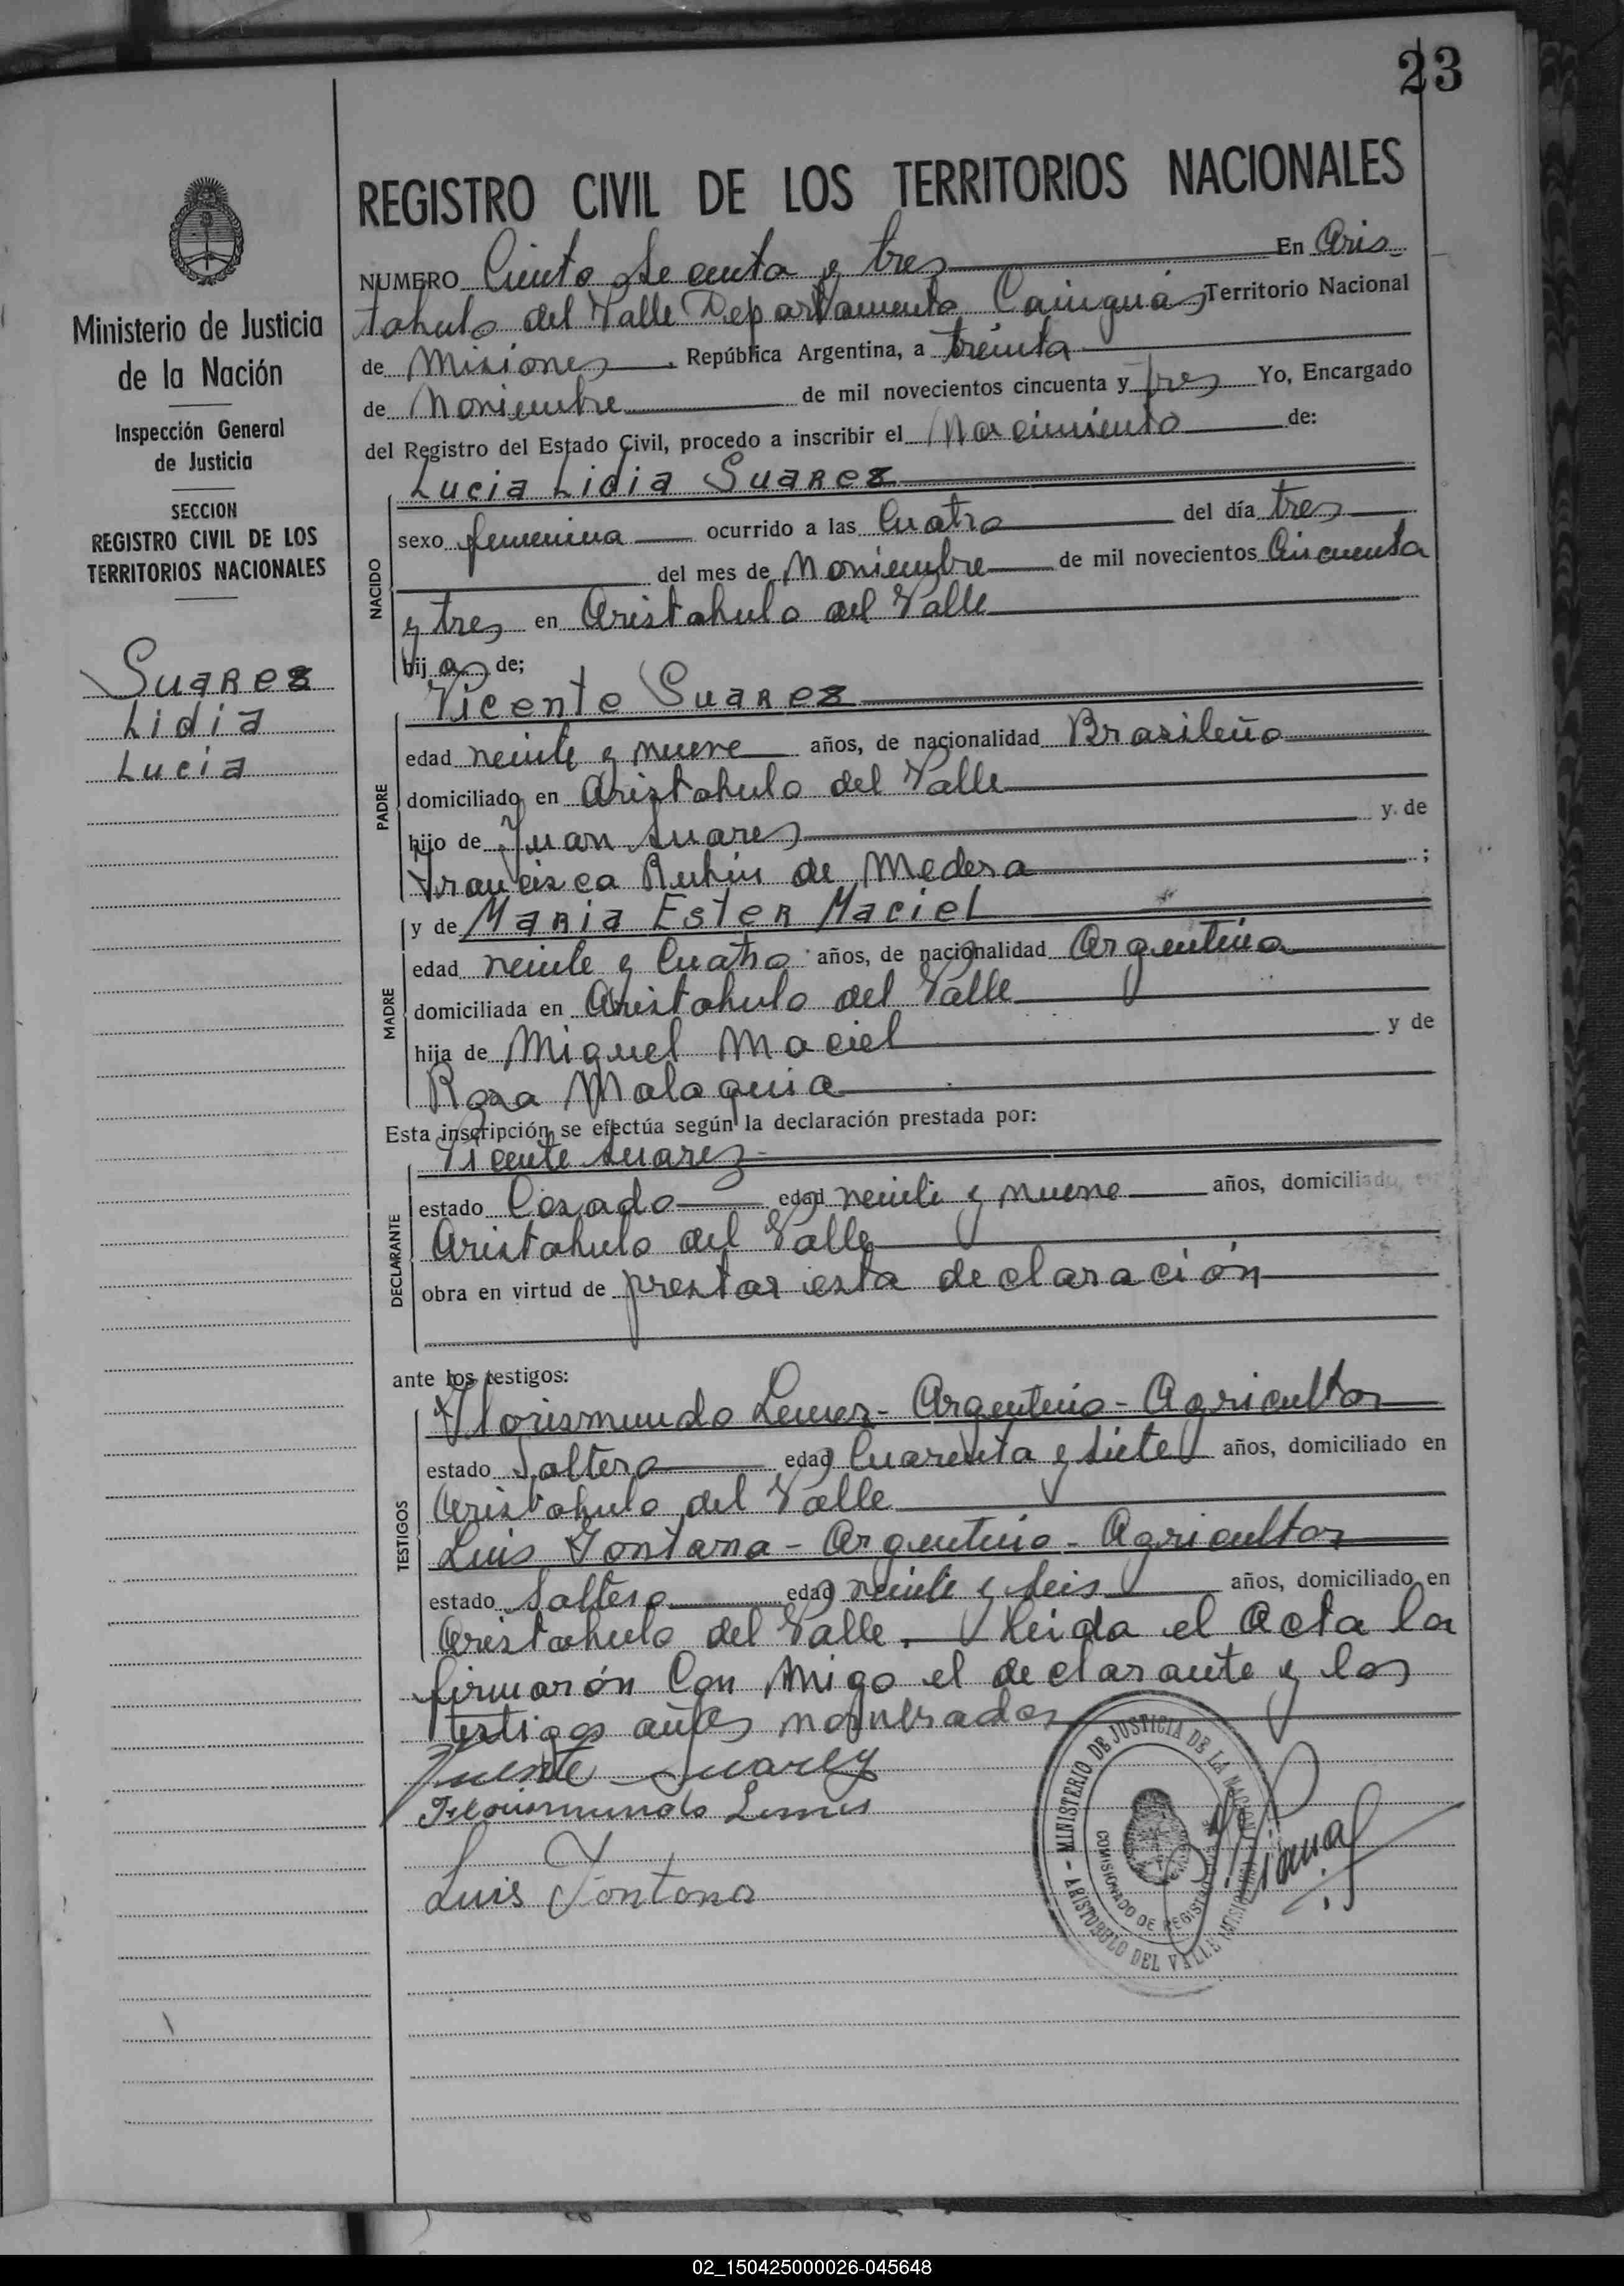 23
REGISTRO CIVIL DE LOS TERRITORIOS NACIONALES
Ministerio de Justicia
de la Nación
Inspección General
de Justicia
SECCION
REGISTRO CIVIL DE LOS
TERRITORIOS NACIONALES
Suarez
Lidia
Lucia
NUMERO Ciento y tres En Aris-
tobulo del Valle Departamento Cainguás Territorio Nacional
de Misiones, República Argentina, a treinta
de Noviembre de mil novecientos cincuenta y Tres Yo, Encargado
del Registro del Estado Civil, procedo a inscribir el Nacimiento de:
Lucia Lidia Suarez
NACIDO
sexo femenina ocurrido a las Cuatro del día tres
del mes de Noviembre de mil novecientos Cincuenta
y tres en Aristobulo del Valle
hija de;
Vicente Suarez
PADRE
edad veinte y nueve años, de nacionalidad Brasileño
domiciliado en Aristobulo del Valle
hijo de Juan Suares y de
Francisca Rubin de Medera;
y de Maria Ester Maciel
MADRE
edad veinte y Cuatro años, de nacionalidad Argentina
domiciliada en Aristobulo del Valle
hija de Miguel Maciel y de
Rosa Malaquia
Esta inscripción se efectúa según la declaración prestada por:
Vicente Suarez
DECLARANTE
estado Casado edad veinte y nueve años, domiciliado en
Aristobulo del Valle
obra en virtud de prestar esta declaración
ante los testigos:
Florismundo Lemes - Argentino - Agricultor
TESTIGOS
estado Soltero edad Cuarenta y siete años, domiciliado en
Aristobulo del Valle
Luis Fontana - Argentino - Agricultor
estado Soltero edad veinte y seis años, domiciliado en
Aristobulo del Valle. Leida el Acta la
firmarón Con Migo el declarante y los
testigos antes nombrados
Vicente Suarez
Florismundo Lemes
Luis Fontana
- MINISTERIO DE JUSTICIA DE LA NACION - ARISTOBULO DEL VALLE (MISIONES)
COMISIONADO DE REGISTRO
02_150425000026-045648